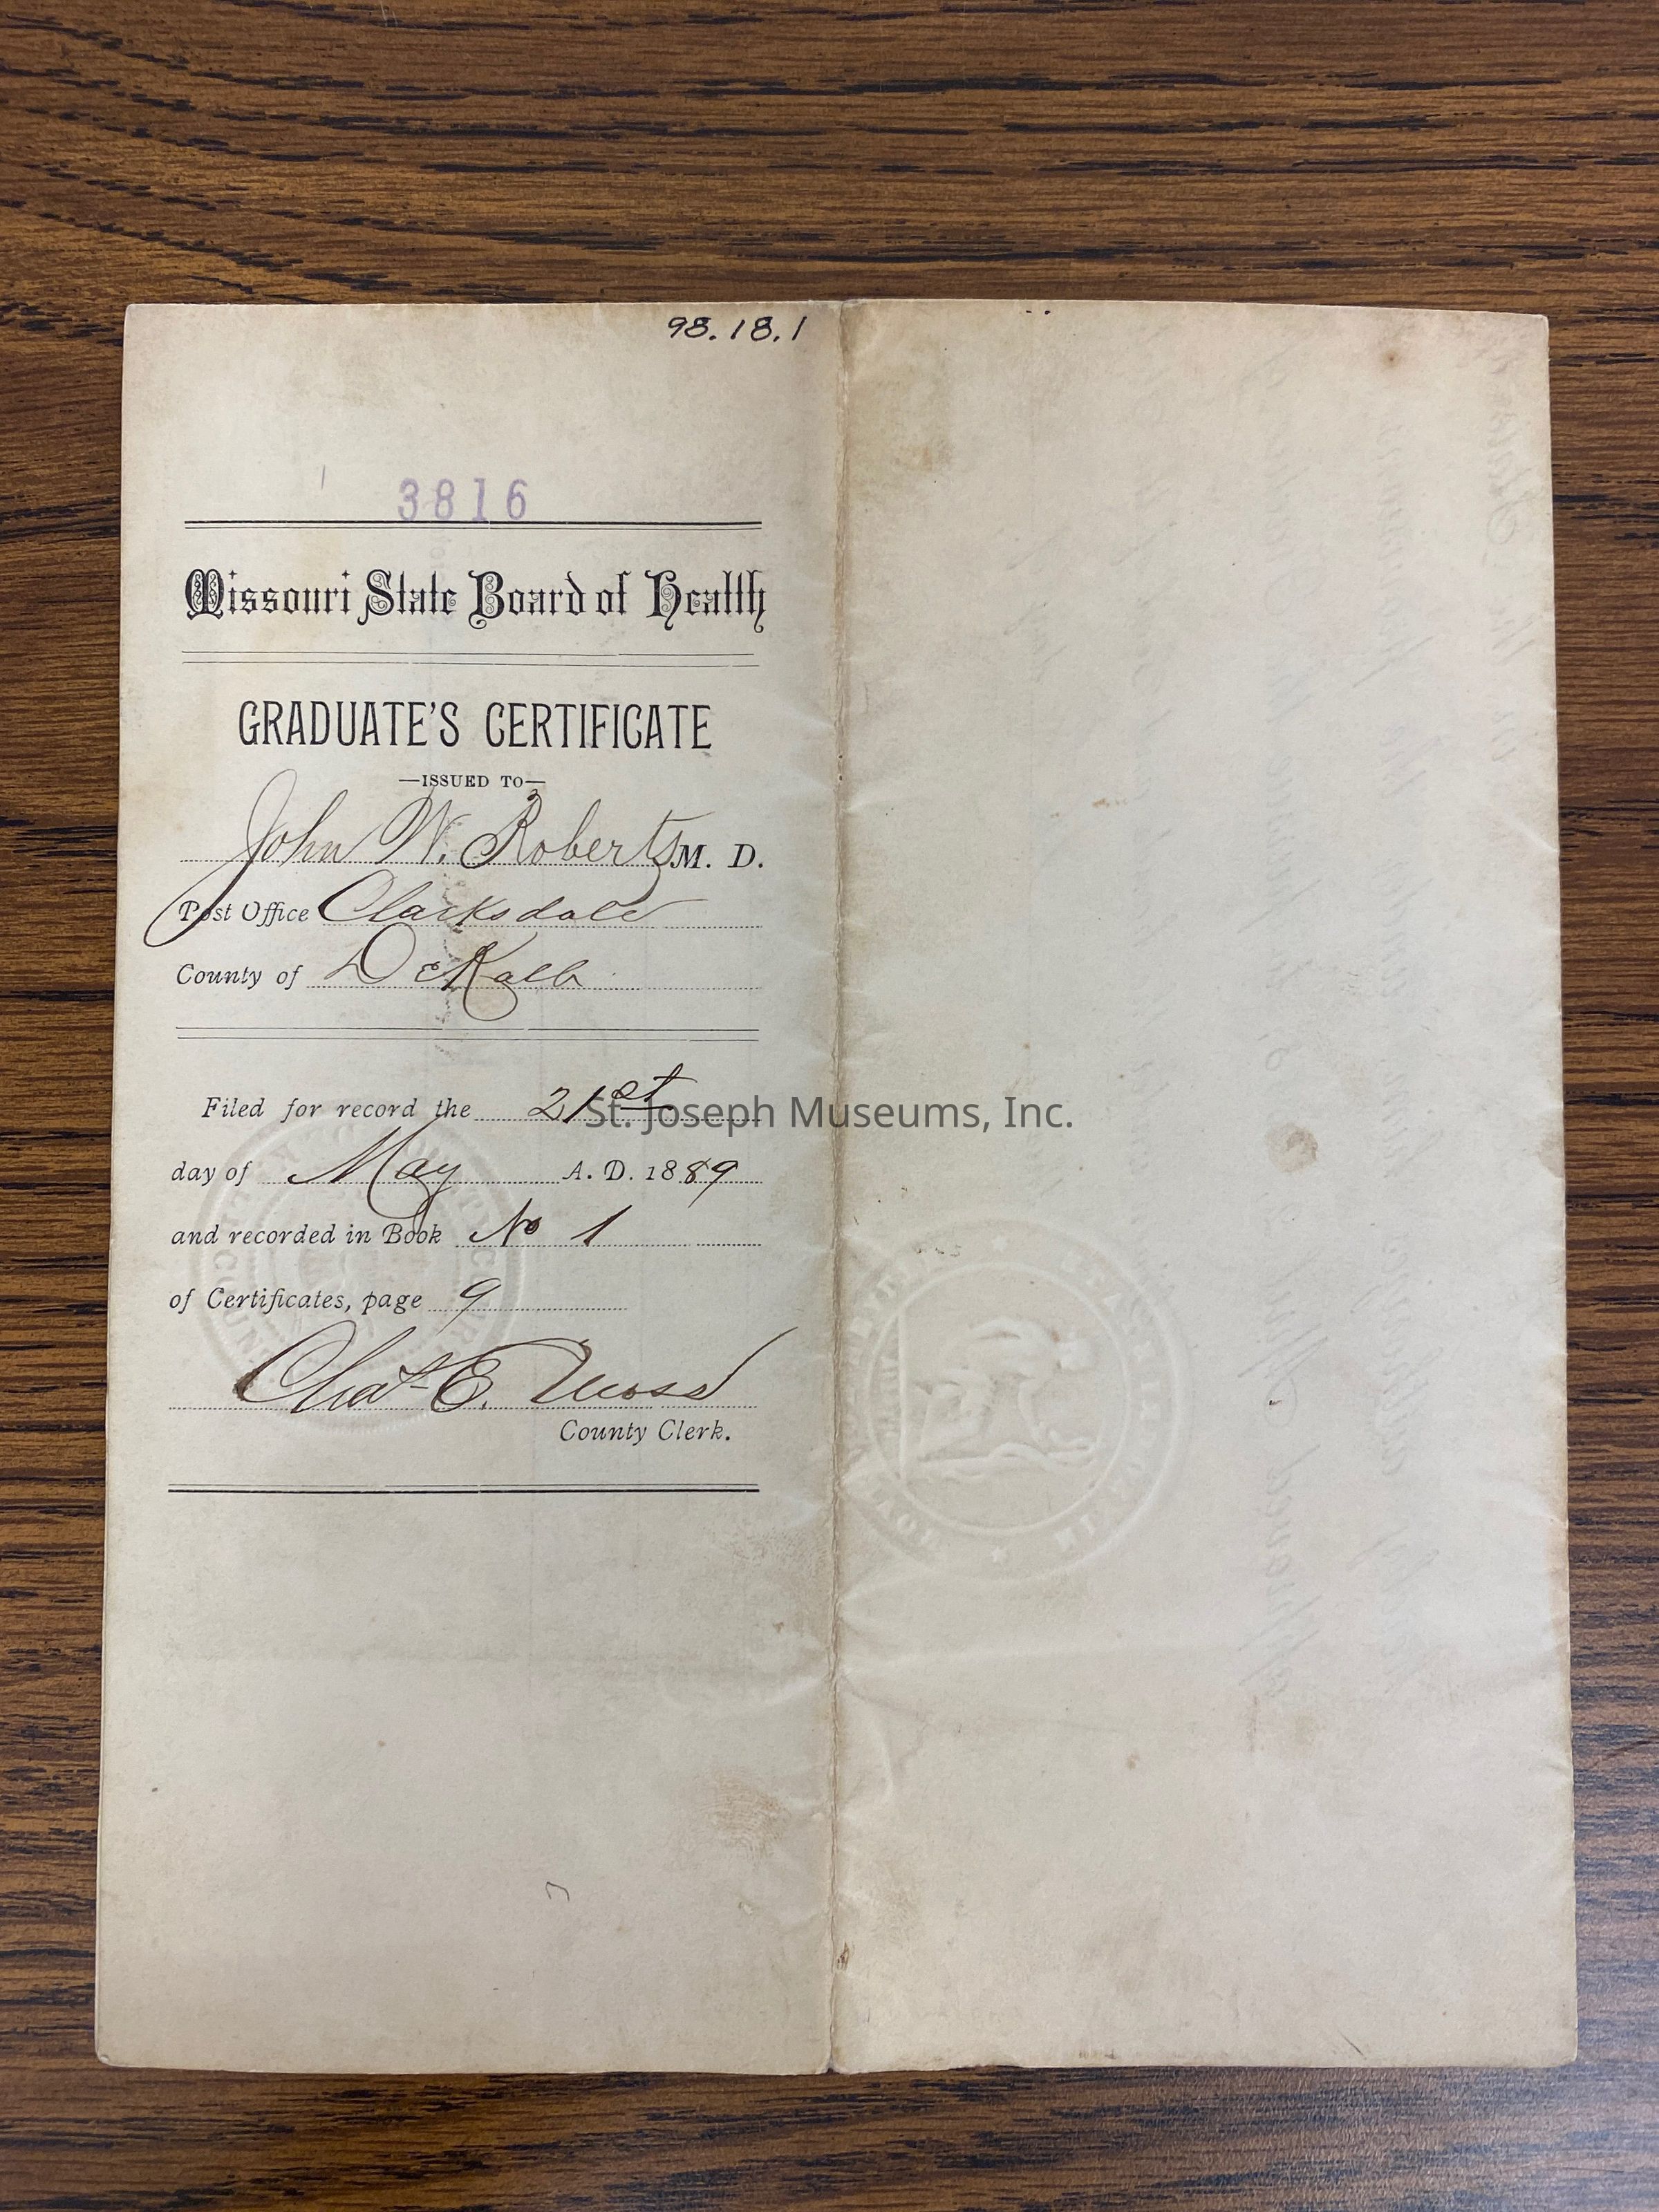 98.18.1
3816
Missouri State Board of Health
GRADUATE'S CERTIFICATE
—ISSUED TO—
John W. Roberts M. D.
Post Office Clarksdale
County of DeKalb
Filed for record the 21st
St. Joseph Museums, Inc.
day of May A. D. 1889
and recorded in Book No 1
of Certificates, page 9
Chas E. Moss
County Clerk.